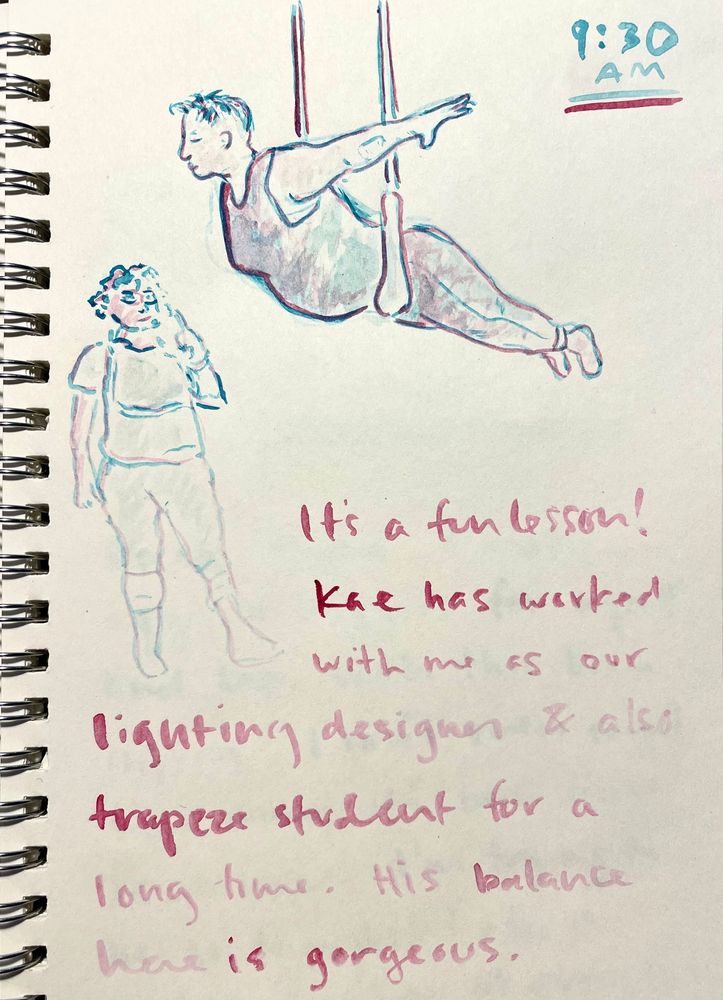 9:30
AM
It's a fun lesson!
Kae has worked
with me as our
lighting designer & also
trapeze student for a
long time. His balance
here is gorgeous.